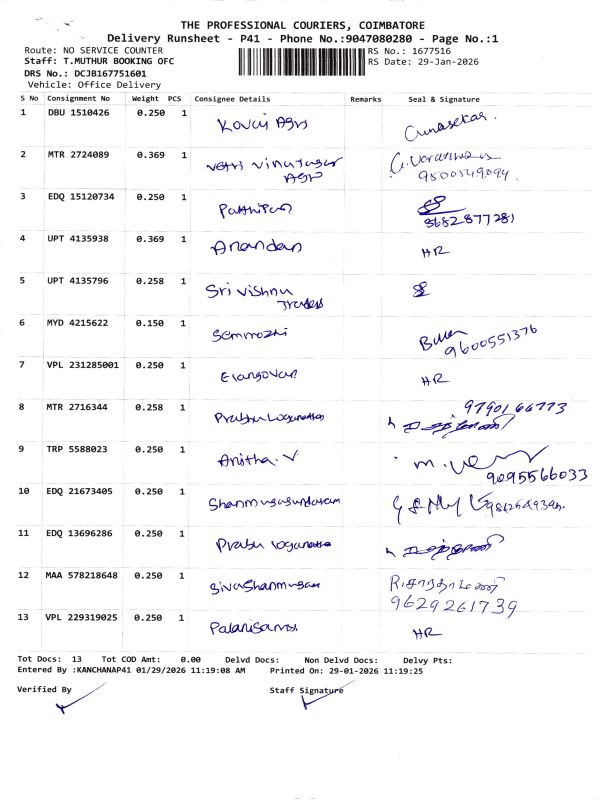 THE PROFESSIONAL COURIERS, COIMBATORE
Delivery Runsheet - P41 - Phone No.:9047080280 - Page No.:1
Route: NO SERVICE COUNTER
RS No.: 1677516
Staff: T.MUTHUR BOOKING OFC
RS Date: 29-Jan-2026
DRS No.: DCJB167751601
Vehicle: Office Delivery
S No Consignment No Weight PCS Consignee Details Remarks Seal & Signature
1 DBU 1510426 0.250 1 Kovai Agrs Gunasekar.
2 MTR 2724089 0.369 1 Vetri Vinayagar
Agr
3 EDQ 15120734 0.250 1
8682877281
4 UPT 4135938 0.369 1 Anandan HR
5 UPT 4135796 0.258 1 Sri Vishnu
Traders
6 MYD 4215622 0.150 1 Semmozhi
9600551376
7 VPL 231285001 0.250 1 Elangovan HR
8 MTR 2716344 0.258 1 Prabhu Loganathan
9790166773
9 TRP 5588023 0.250 1 Anitha. V
9095566033
10 EDQ 21673405 0.250 1 Shanmugasundaram
11 EDQ 13696286 0.250 1 Prabu loganathan
12 MAA 578218648 0.250 1 Sivashanmugam
9629261739
13 VPL 229319025 0.250 1 Palanisamy HR
Tot Docs: 13 Tot COD Amt: 0.00 Delvd Docs: Non Delvd Docs: Delvy Pts:
Entered By :KANCHANAP41 01/29/2026 11:19:08 AM Printed On: 29-01-2026 11:19:25
Verified By Staff Signature